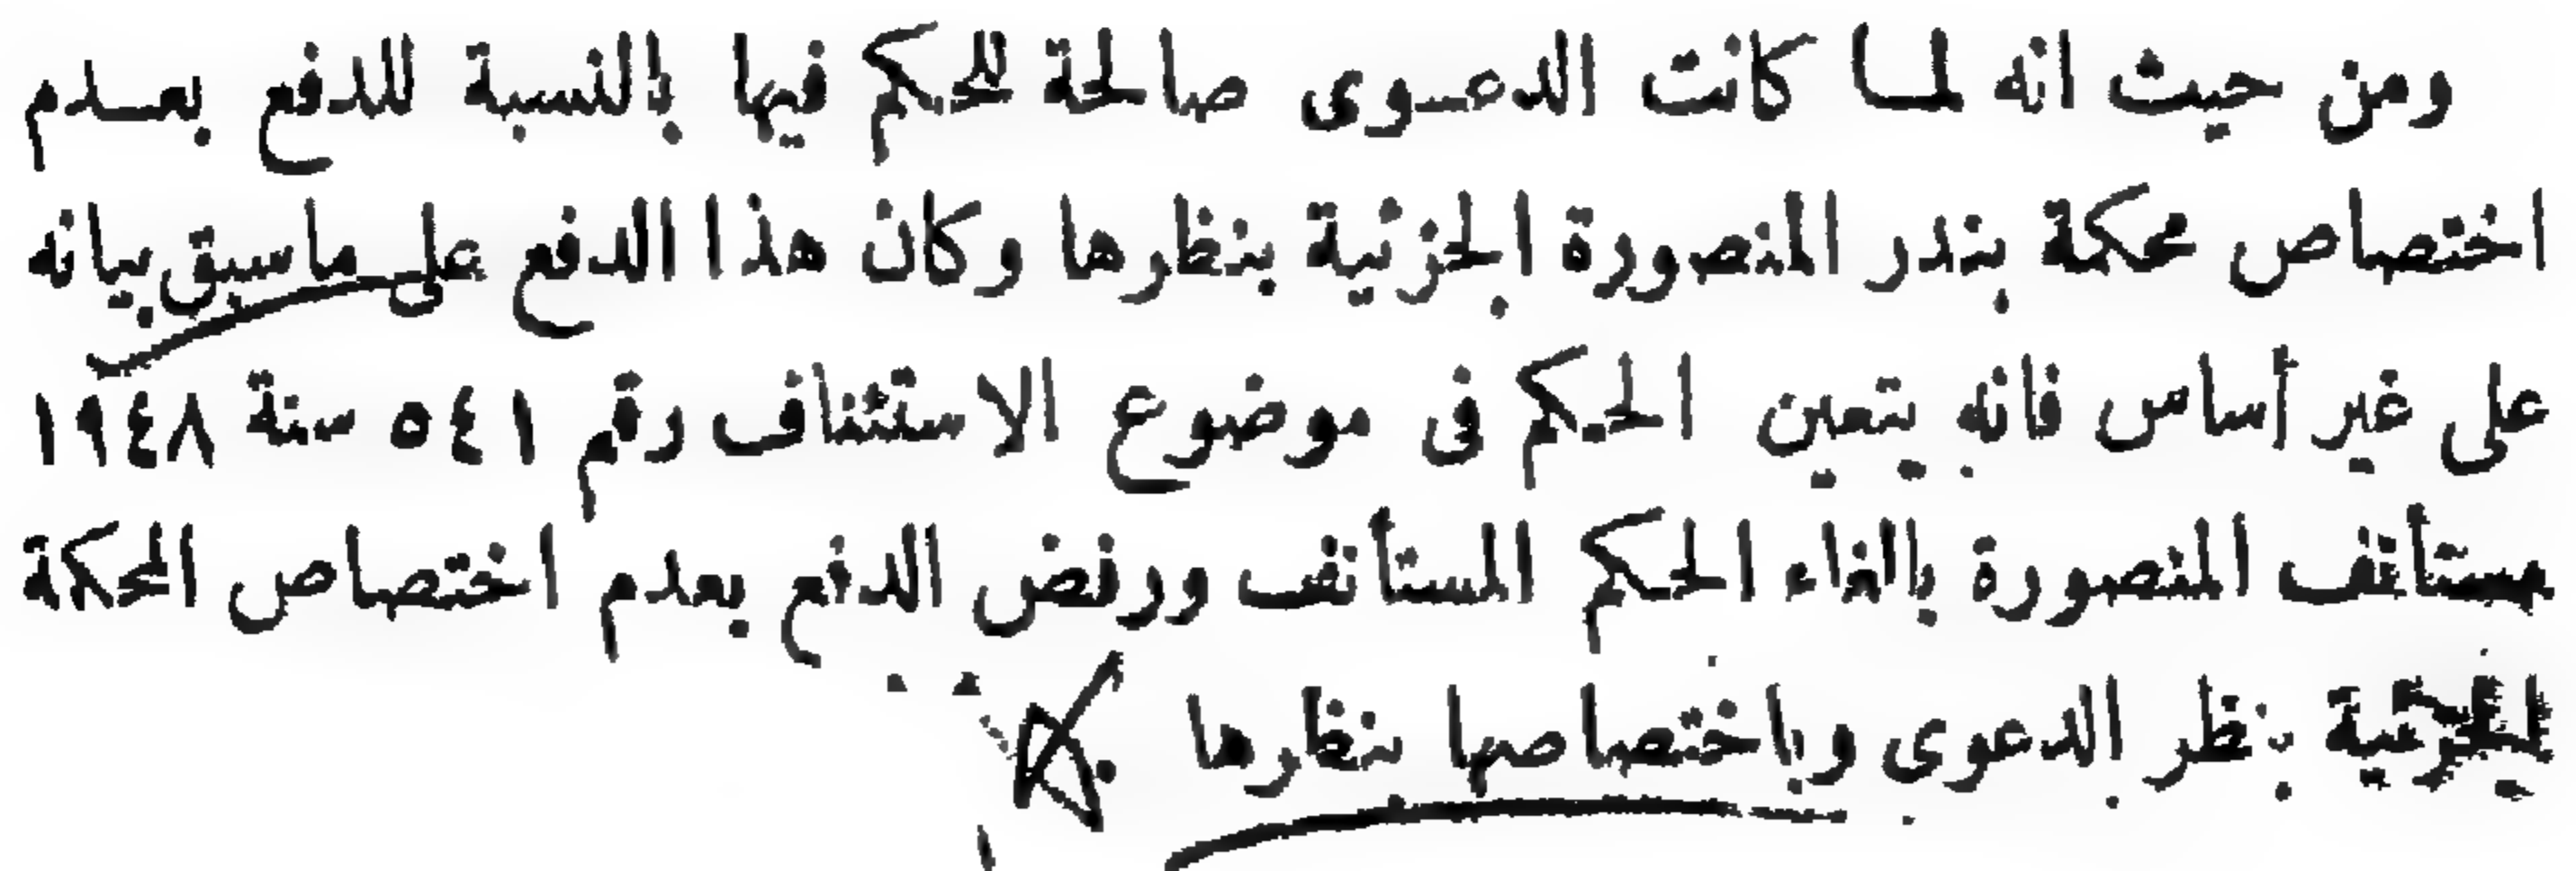 ومن حيث انه لما كانت الدعوى صالحة للحكم فيها بالنسبة للدفع بعدم
اختصاص محكمة بندر المنصورة الجزئية بنظرها وكان هذا الدفع على ماسبق بيانه
على غير أساس فانه يتعين الحكم فى موضوع الاستئناف رقم ٥٤١ سنة ١٩٤٨
مستأنف المنصورة بالغاء الحكم المستأنف ورفض الدفع بعدم اختصاص المحكمة
الجزئية بنظر الدعوى وباختصاصها بنظرها .